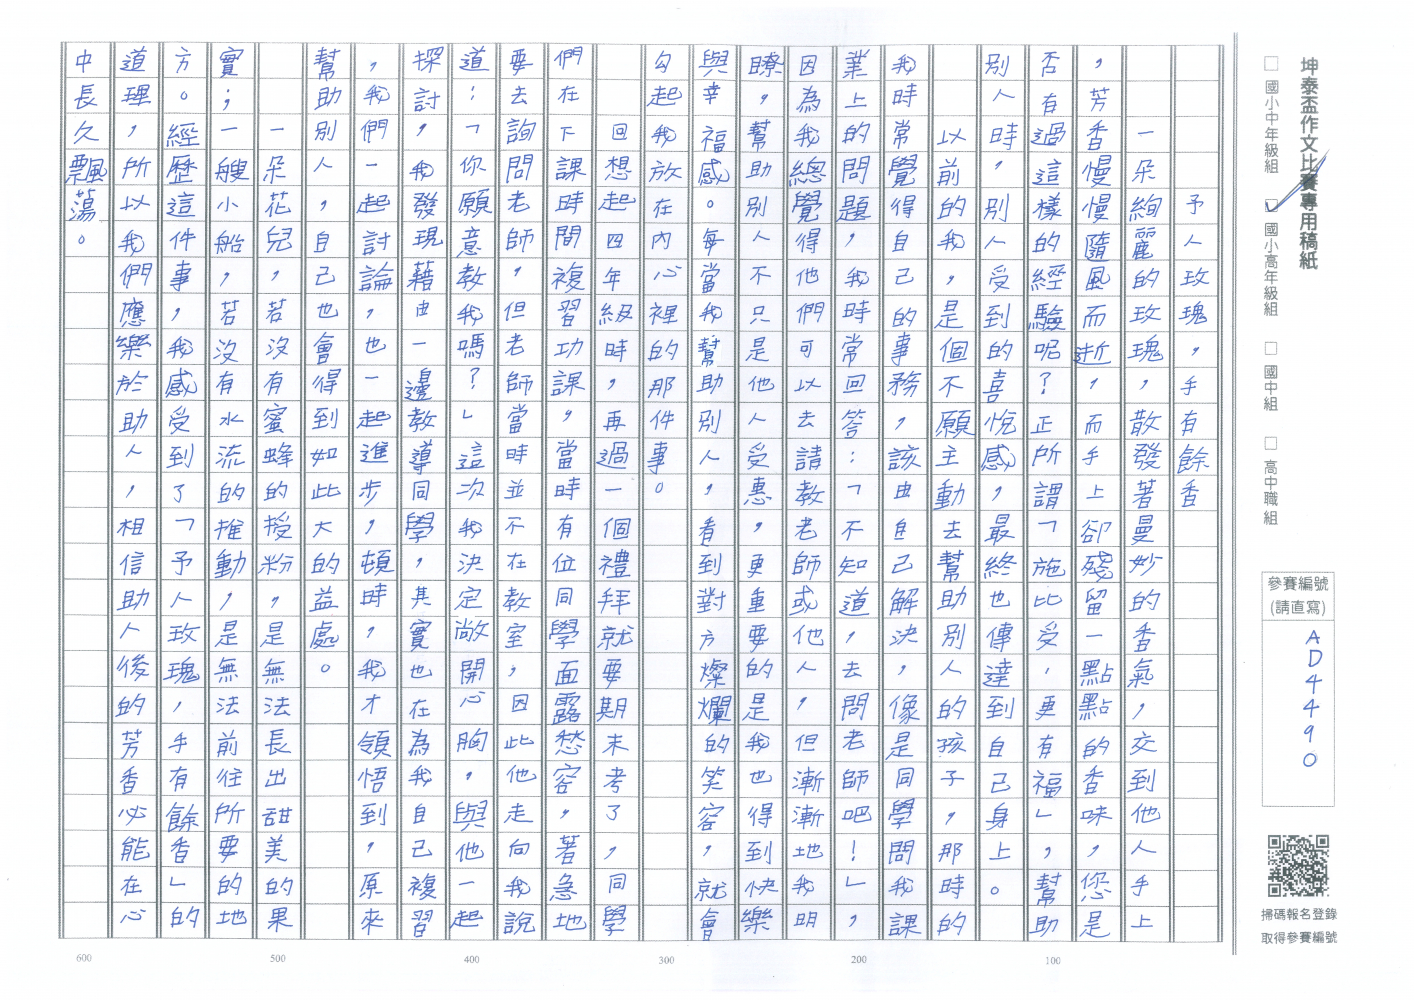 坤泰盃作文比賽專用稿紙
□ 國小中年級組 ☑ 國小高年級組 □ 國中組 □ 高中職組
參賽編號
(請直寫)
AD4490
掃碼報名登錄
取得參賽編號
予人玫瑰,手有餘香
一朵絢麗的玫瑰,散發著曼妙的香氣,交到他人手上
,芳香慢慢隨風而逝,而手上卻殘留一點點的香味,您是
否有過這樣的經驗呢?正所謂「施比受,更有福」,幫助
別人時,別人受到的喜悅感,最終也傳達到自己身上。
以前的我,是個不願主動去幫助別人的孩子,那時的
我時常覺得自己的事務,該由自己解決,像是同學問我課
業上的問題,我時常回答:「不知道,去問老師吧!」,
因為我總覺得他們可以去請教老師或他人,但漸漸地我明
瞭,幫助別人不只是他人受惠,更重要的是我也得到快樂
與幸福感。每當我幫助別人,看到對方燦爛的笑容,就會
勾起我放在內心裡的那件事。
回想起四年級時,再過一個禮拜就要期末考了,同學
們在下課時間複習功課,當時有位同學面露愁容,著急地
要去詢問老師,但老師當時並不在教室,因此他走向我說
道:「你願意教我嗎?」這次我決定敞開心胸,與他一起
探討,我發現藉由一邊教導同學,其實也在為我自己複習
,我們一起討論,也一起進步,頓時,我才領悟到,原來
幫助別人,自己也會得到如此大的益處。
一朵花兒,若沒有蜜蜂的授粉,是無法長出甜美的果
實;一艘小船,若沒有水流的推動,是無法前往所要的地
方。經歷這件事,我感受到了「予人玫瑰,手有餘香」的
道理,所以我們應樂於助人,相信助人後的芳香必能在心
中長久飄蕩。
600
500
400
300
200
100